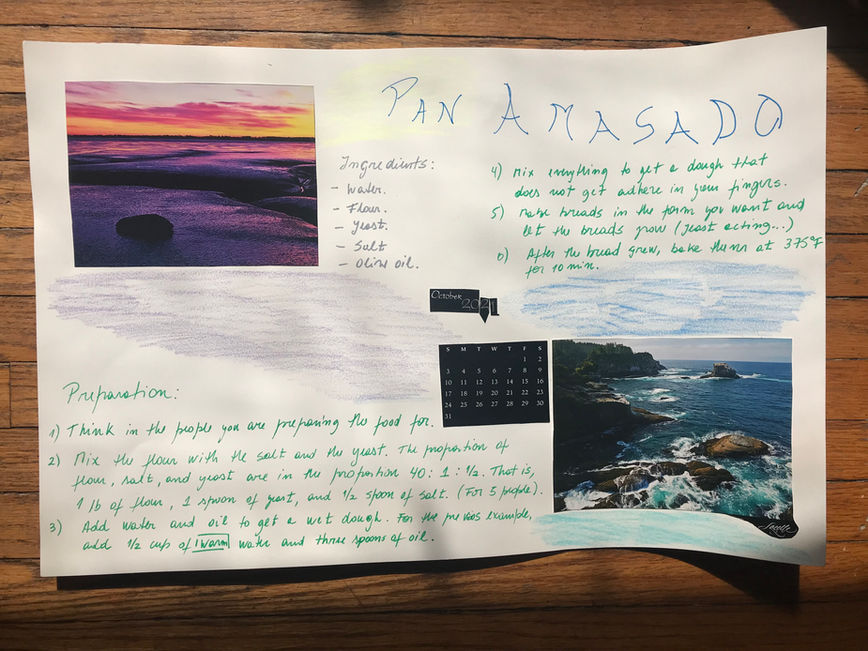 PAN AMASADO
Ingredients:
- Water.
- Flour.
- Yeast.
- Salt
- Olive oil.
4) Mix everything to get a dough that
does not get adhere in your fingers.
5) Make breads in the form you want and
let the breads grow (yeast acting...)
6) After the bread grew, bake them at 375°F
for 10 min.
October
2021
S M T W T F S
1 2
3 4 5 6 7 8 9
10 11 12 13 14 15 16
17 18 19 20 21 22 23
24 25 26 27 28 29 30
31
Preparation:
1) Think in the people you are preparing the food for.
2) Mix the flour with the salt and the yeast. The proportion of
flour, salt, and yeast are in the proportion 40:1:1/2. That is,
1 lb of flour, 1 spoon of yeast, and 1/2 spoon of salt. (For 5 people).
3) Add water and oil to get a wet dough. For the previos example,
add 1/2 cup of warm water and three spoons of oil.